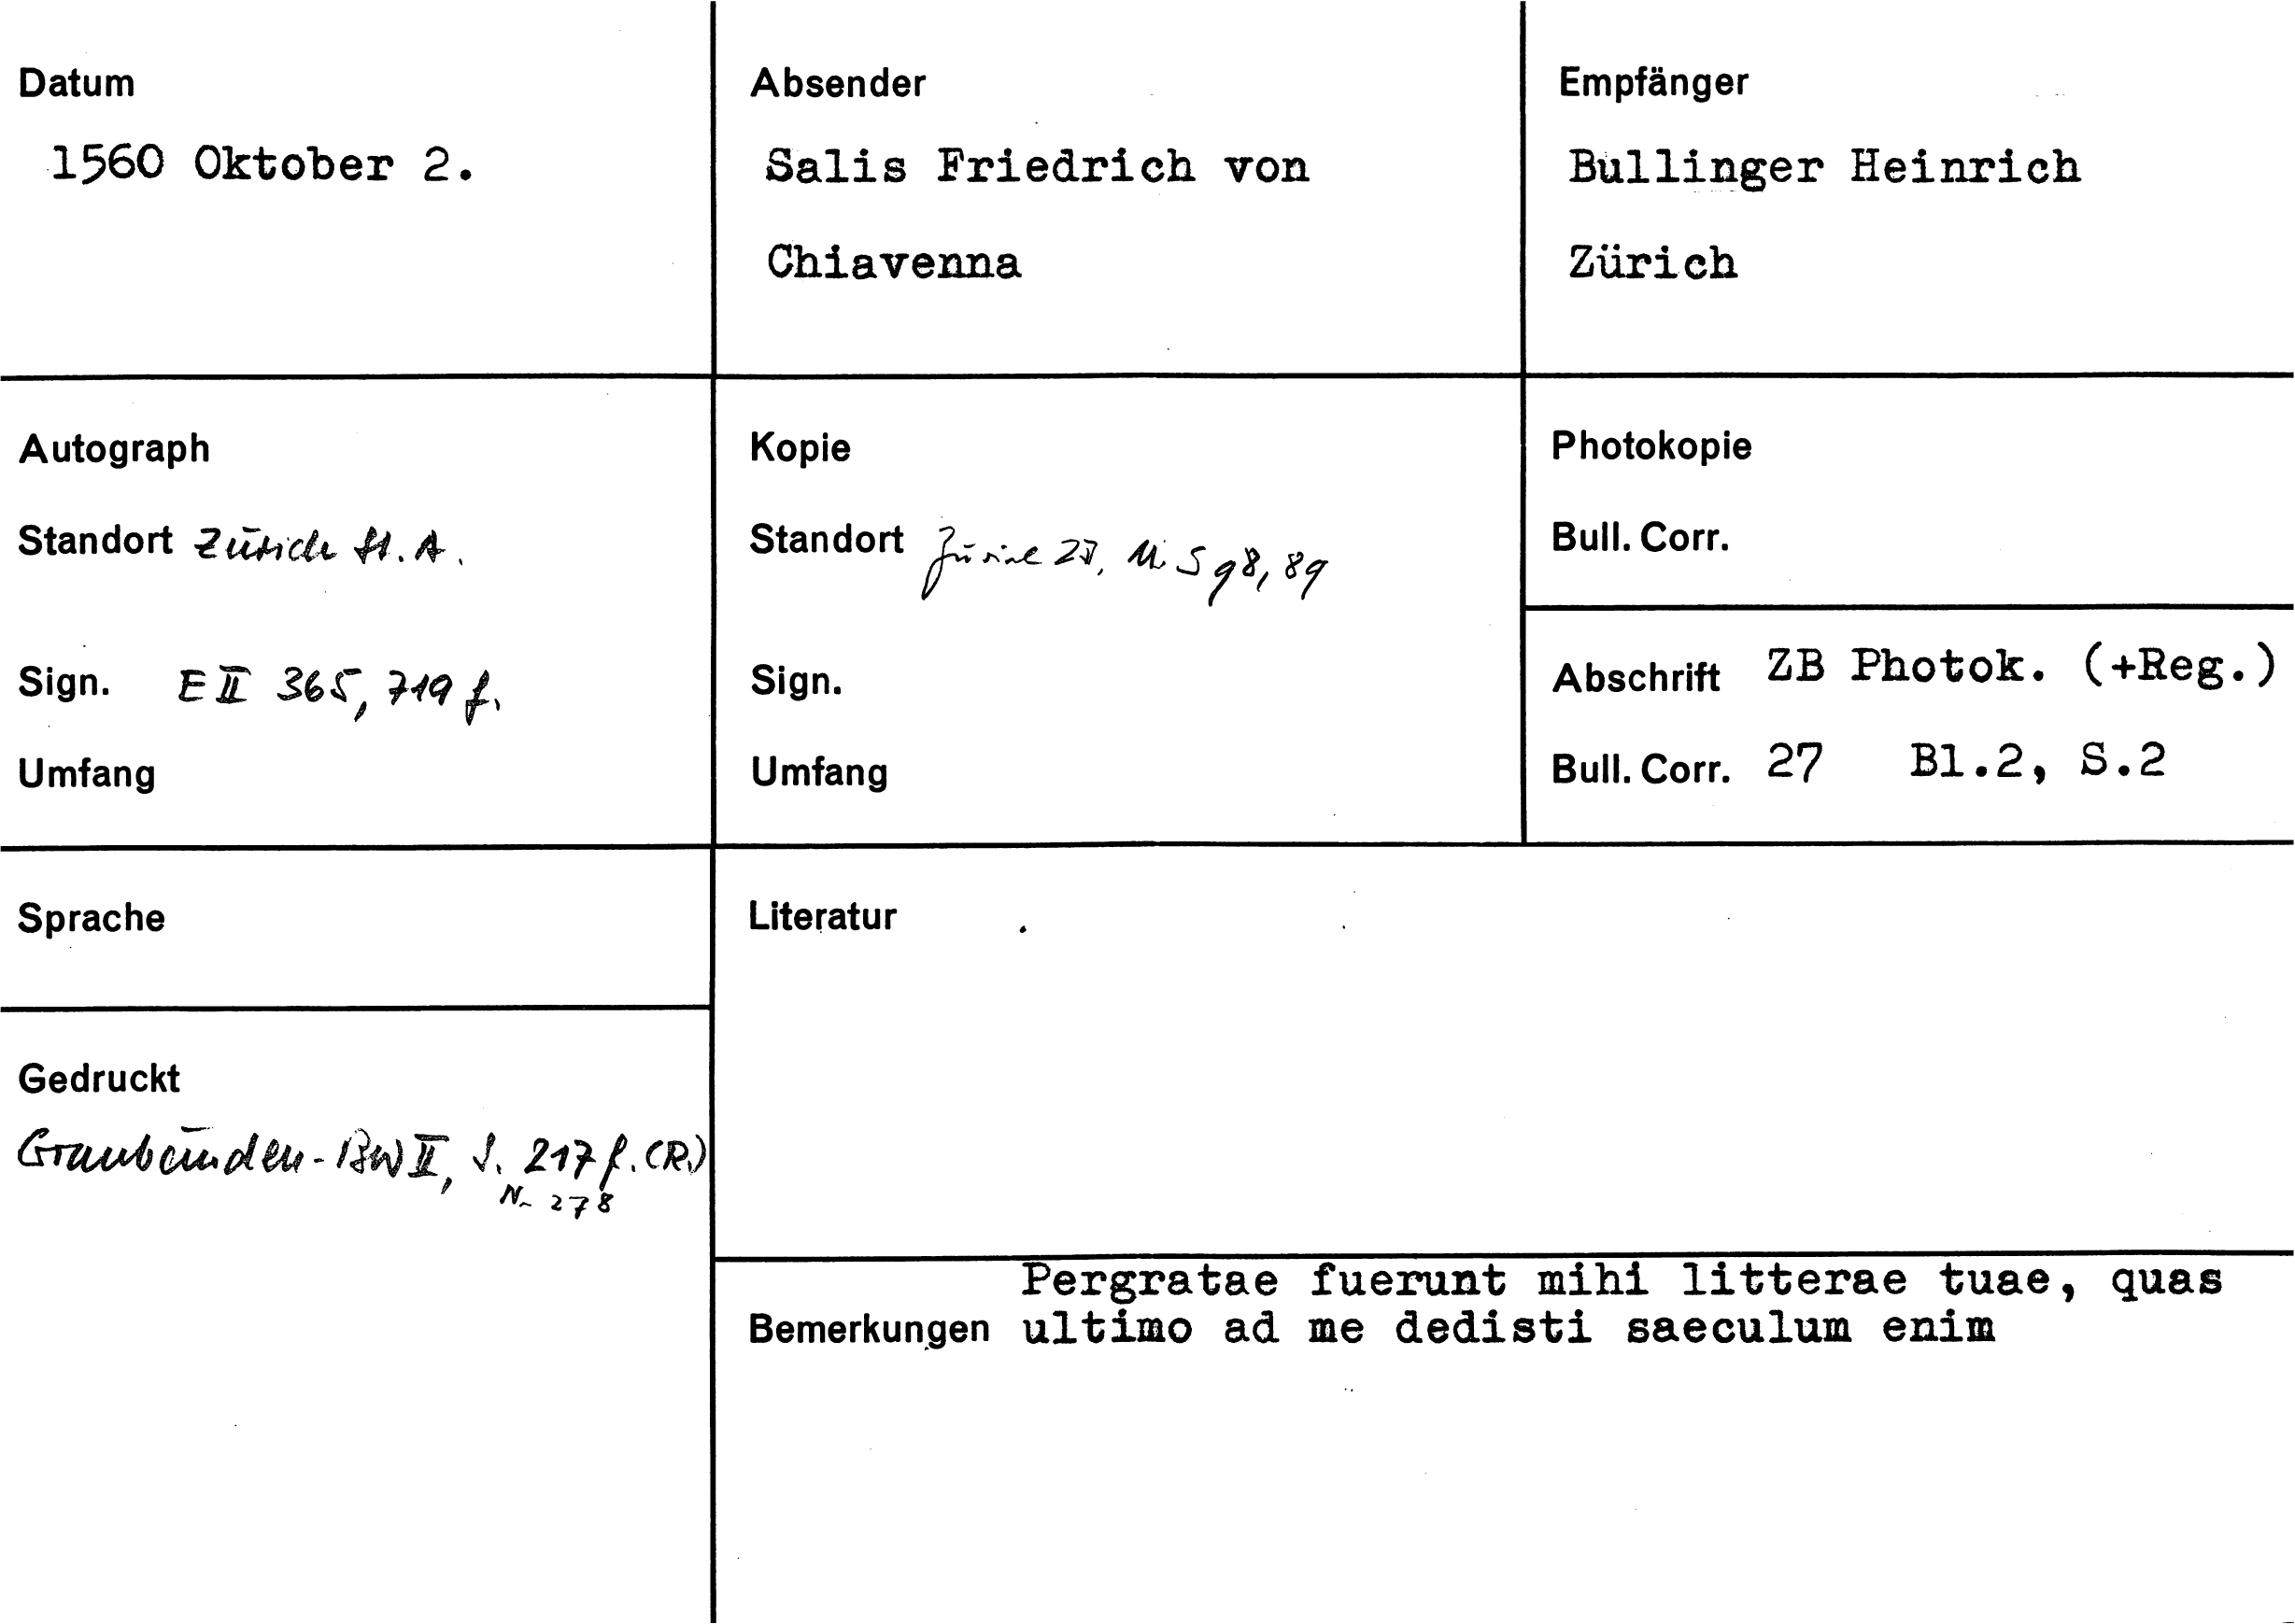 Datum
1560 Oktober 2.
Absender
Salis Friedrich von
Chiavenna
Empfänger
Bullinger Heinrich
Zürich
Autograph
Standort Zürich St. A.
Sign. E II 365, 719 f.
Umfang
Kopie
Standort Zürich ZB, Ms S 98, 89
Sign.
Umfang
Photokopie
Bull. Corr.
Abschrift ZB Photok. (+Reg.)
Bull. Corr. 27 Bl.2, S.2
Sprache
Gedruckt
Graubünden-BW II, S. 217 f. (R.)
Nr 278
Literatur
Pergratae fuerunt mihi litterae tuae, quas
Bemerkungen ultimo ad me dedisti saeculum enim